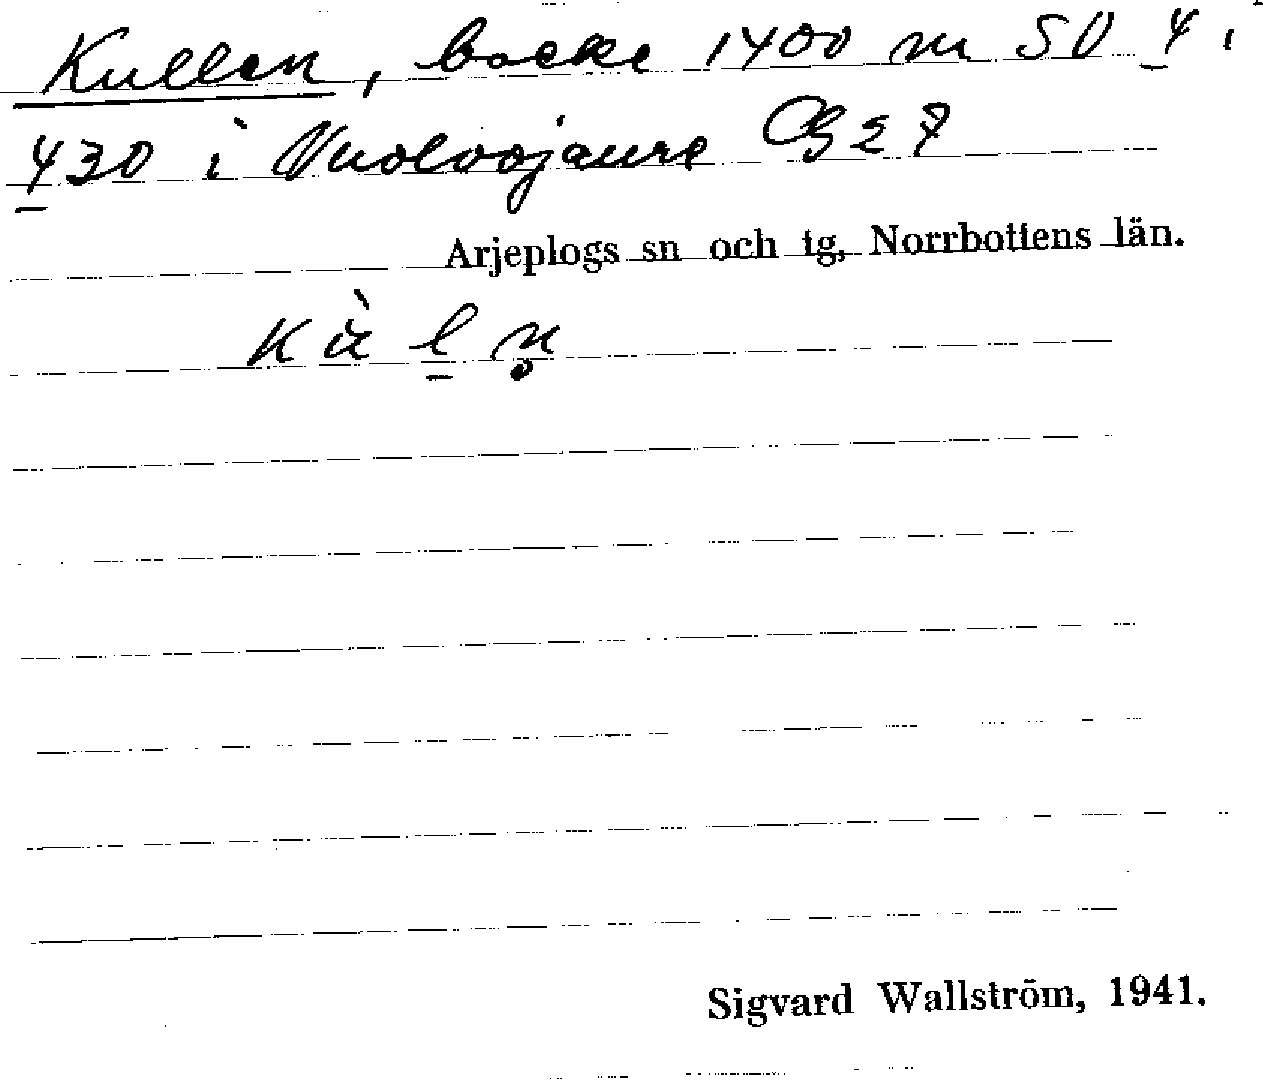 Kullen, backe 1400 m SO 4 i
430 i Vuolvojaure CB 27
Arjeplogs sn och tg, Norrbottens län.
kù̈l̠n̥
Sigvard Wallström, 1941.